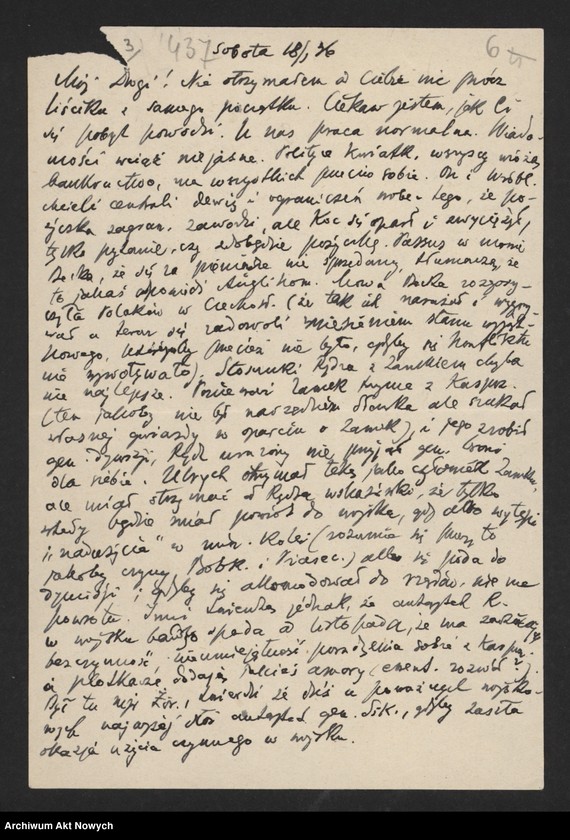 3/ 437 Sobota 18/I 36 6
Mój Drogi! Nie otrzymałem od Ciebie nic prócz
liściku z samego początku. Ciekaw jestem, jak Ci
się pobyt powodzi. U nas praca normalna. Wiado-
mości wciąż niejasne. Polityce Kwiatk. wszyscy wróżą
bankructwo, ma wszystkich przeciw sobie. On i
chcieli centrali dewiz i ograniczeń wobec tego, że po-
życzka zagran. zawodzi, ale Koc się oparł i zwyciężył,
tylko pytanie, czy zdobędzie pożyczkę. Passus w mowie
Becka, że się za pieniądze nie sprzedamy, tłumaczą, że
to jakaś odpowiedź Anglikom. Mowa Becka rozgory-
czyła Polaków w Czechosł. (że tak ich naraził i
wał a teraz się zadowoli zniesieniem stanu wyjąt-
kowego, któregoby przecież nie było, gdyby się konfliktu
nie wywoływało). Stosunki Rydza z Zamkiem chyba
nie najlepsze. Ponieważ Zamek trzyma z Kasprz.
(ten jakoby nie był narzędziem Sławka ale szukał
własnej gwiazdy w oparciu o Zamek), i jego zrobił
gen. dywizji, Rydz urażony nie przyjął gen. broni
dla siebie. Ulrych otrzymał tekę jako człowiek Zamku,
ale miał otrzymać od Rydza wskazówki, że tylko
wtedy będzie miał powrót do wojska, gdy albo wytępi
"nadużycia" w min. Kolei (rozumie się przez to
jakoby czyny Bobk. i Piasec.) albo się poda do
dymisji; gdyby się akomodował do rządów, nie ma
powrotu. Inni twierdzą jednak, że autorytet R.
w wojsku bardzo spada od listopada, że ma zarzucają
bezczynność, nieumiejętność poradzenia sobie z Kasprz.
a plotkarze dodają jakieś amory (ewent. rozwód?).
Był tu mjr , twierdzi że dziś u poważnych wojsko-
wych najwyżej stoi autorytet gen. Sik., gdyby zaszła
okazja użycia czynnego w wojsku.
Archiwum Akt Nowych